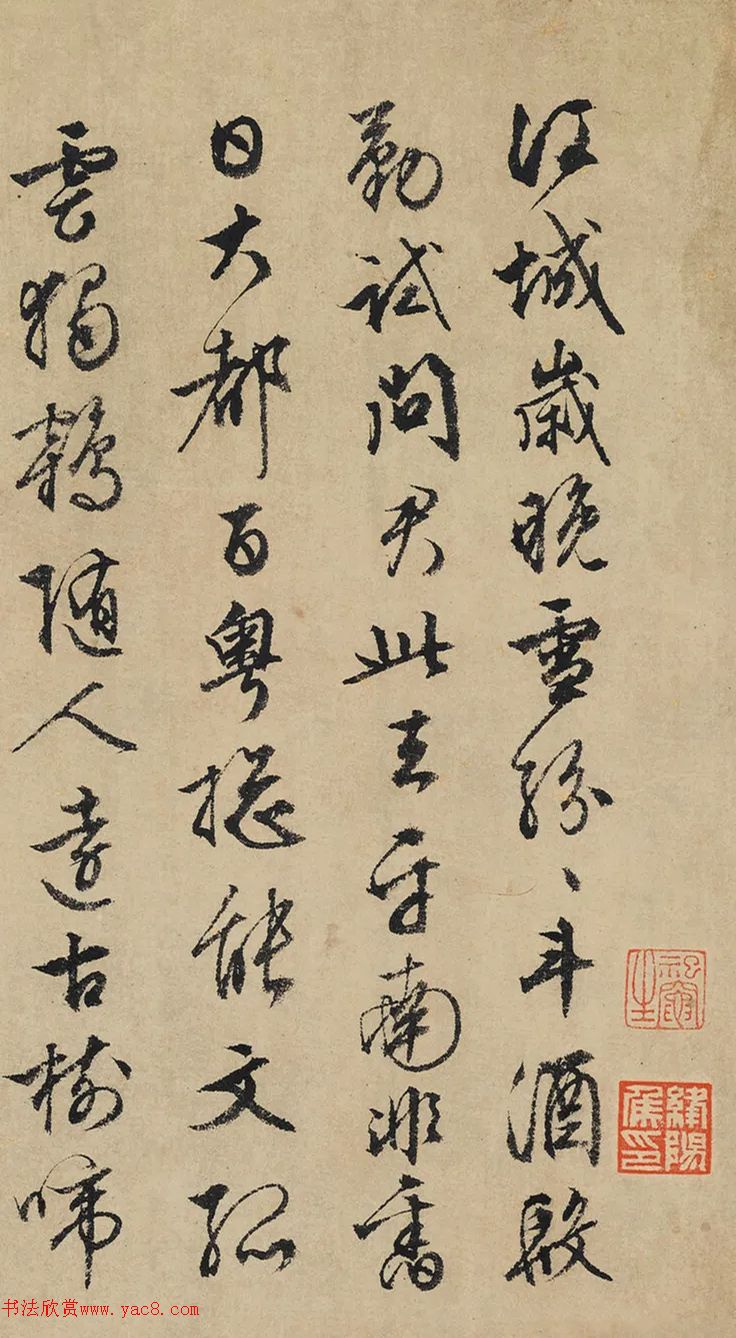 江城歲晚雪紛〻斗酒殷
勤試問君此去平南非舊
日大都百粵揔能文孤
雲獨鶴隨人遠古樹啼
書法欣赏www.yac8.com